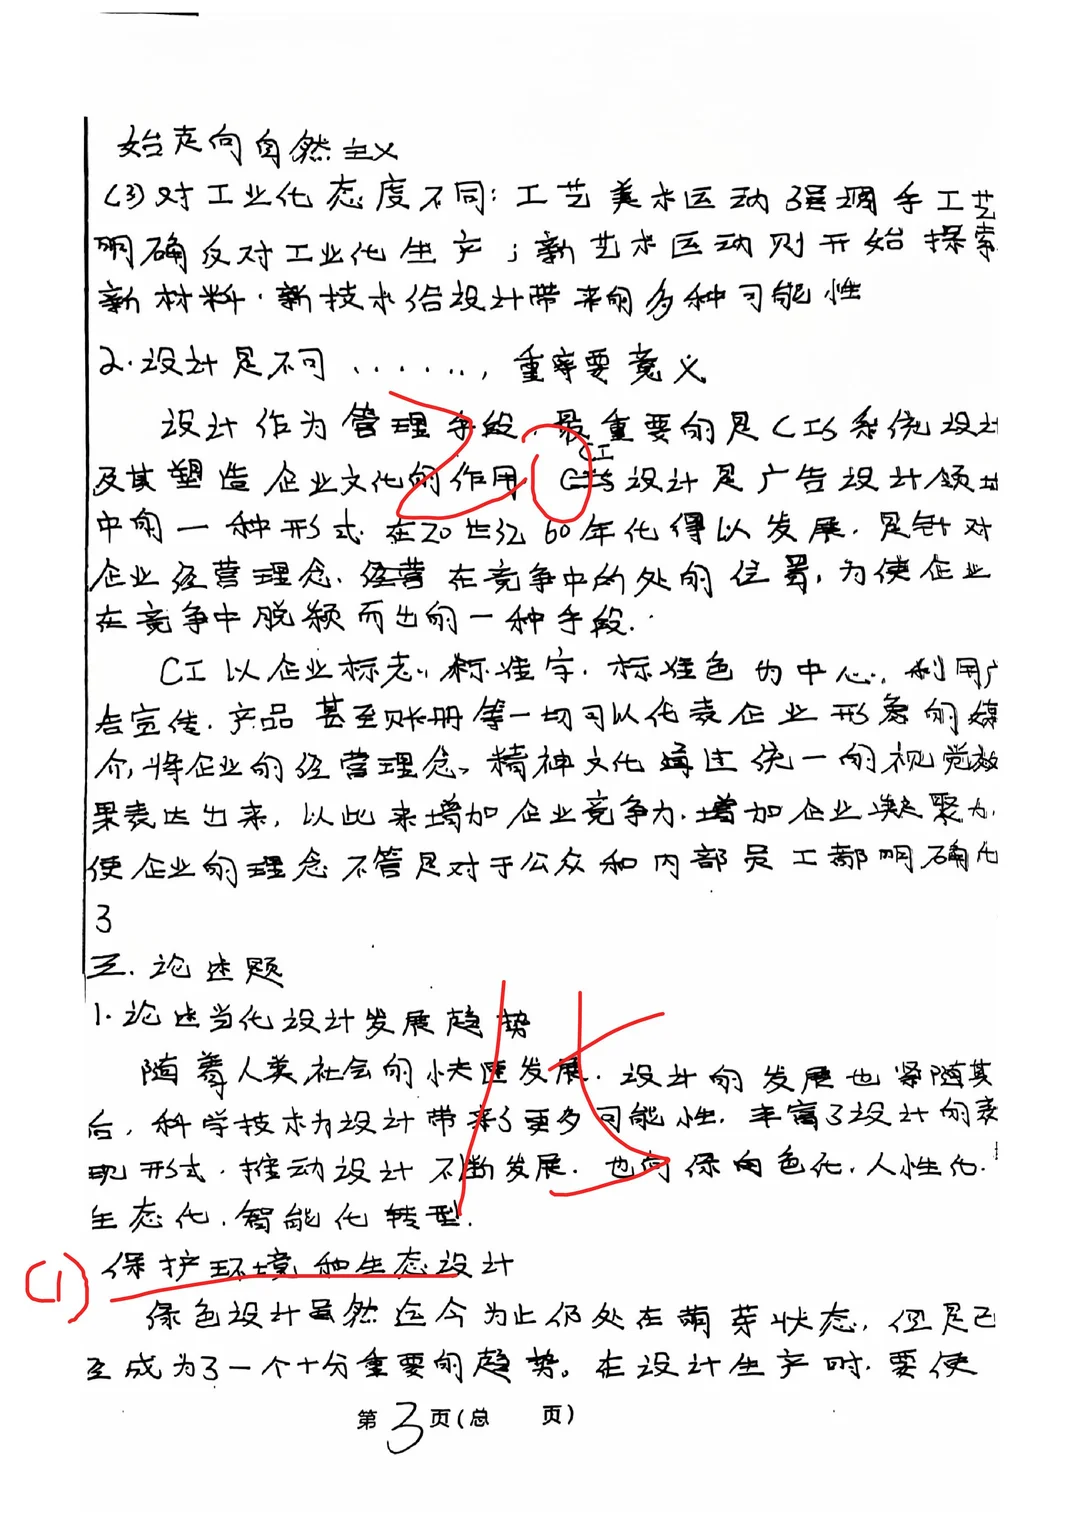 始走向自然主义
(3)对工业化态度不同:工艺美术运动强调手工艺
明确反对工业化生产;新艺术运动则开始探索
新材料.新技术给设计带来的多种可能性
2.设计是不可......,重要意义
设计作为管理手段,最重要的是CIS系统设计
及其塑造企业文化的作用 CI设计是广告设计领域
中的一种形式.在20世纪60年代得以发展.是针对
企业经营理念.经营在竞争中的处的位置,为使企业
在竞争中脱颖而出的一种手段.
CI以企业标志、标准字.标准色为中心,利用广
告宣传.产品甚至账册等一切可以代表企业形象的媒
介,将企业的经营理念、精神文化通过统一的视觉效
果表达出来,以此来增加企业竞争力.增加企业凝聚力.
使企业的理念不管是对于公众和内部员工都明确化
3
20
三.论述题
1.论述当代设计发展趋势
15
随着人类社会的快速发展.设计的发展也紧随其
后,科学技术为设计带来了更多可能性.丰富了设计的表
现形式.推动设计不断发展.也向绿色化.人性化.
生态化.智能化转型.
(1)保护环境和生态设计
绿色设计虽然迄今为止仍处在萌芽状态,但是已
至成为了一个十分重要的趋势。在设计生产时.要使
第3页(总 页)